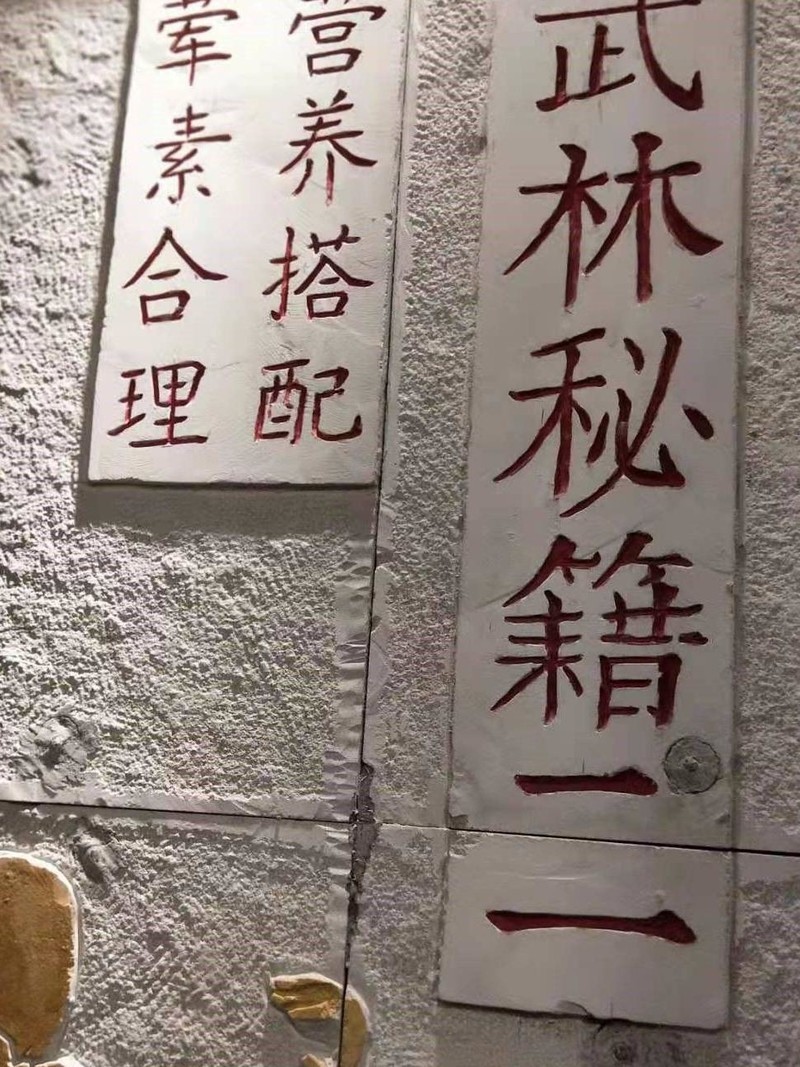 武林秘籍二
营养搭配
荤素合理